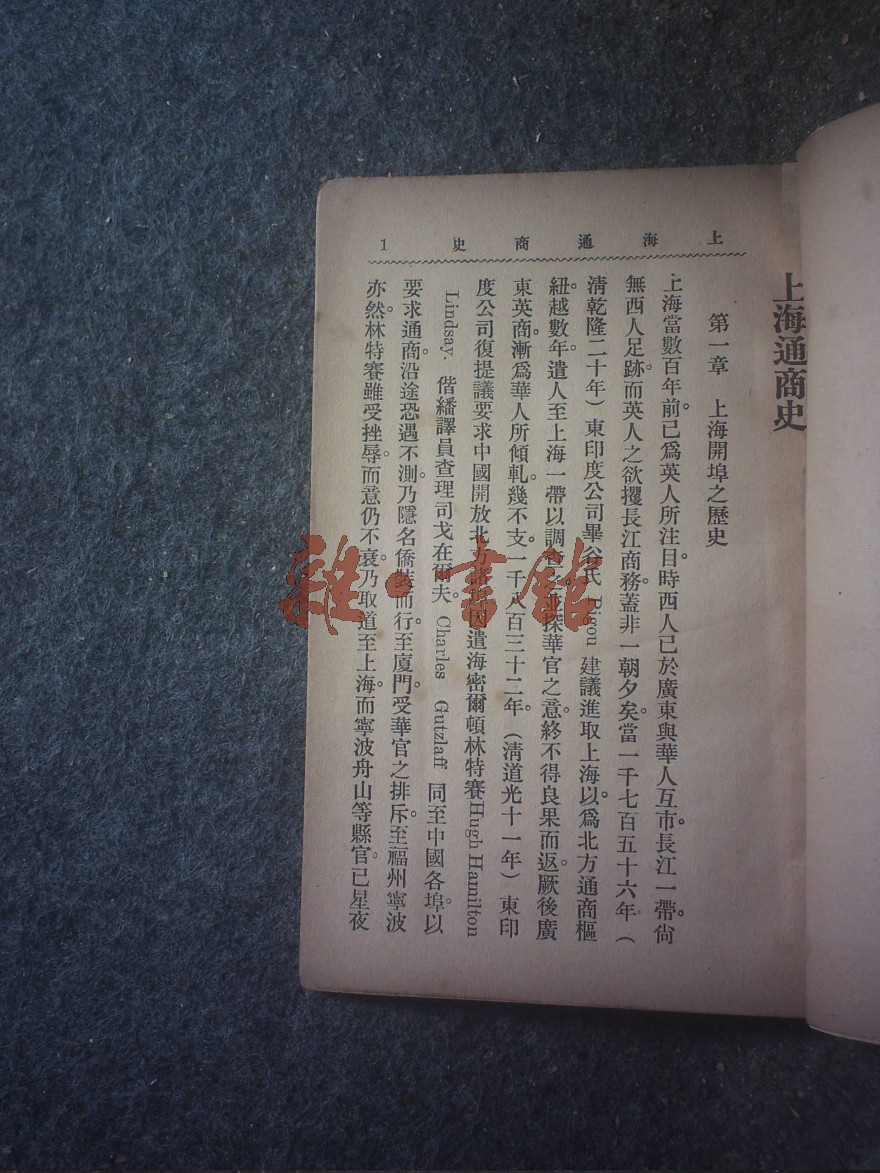 上海通商史 1
上海通商史
第一章 上海開埠之歷史
上海當數百年前。已爲英人所注目。時西人已於廣東與華人互市。長江一帶。尙
無西人足跡。而英人之欲攫長江商務。蓋非一朝夕矣。當一千七百五十六年（
淸乾隆二十年）東印度公司畢谷氏 Pigou 建議進取上海。以爲北方通商樞
紐。越數年。遣人至上海一帶以調查之。並探華官之意。終不得良果而返。厥後廣
東英商。漸爲華人所傾軋。幾不支。一千八百三十二年。（淸道光十一年）東印
度公司復提議要求中國開放北方諸埠。因遣海密爾頓林特賽 Hugh Hamilton
Lindsay. 偕繙譯員查理司戈在爾夫。Charles Gutzlaff 同至中國各埠。以
要求通商。沿途恐遇不測。乃隱名僑裝而行。至廈門。受華官之排斥。至福州寧波
亦然。林特賽雖受挫辱。而意仍不衰。乃取道至上海。而寧波舟山等縣官。已星夜
雜·書館